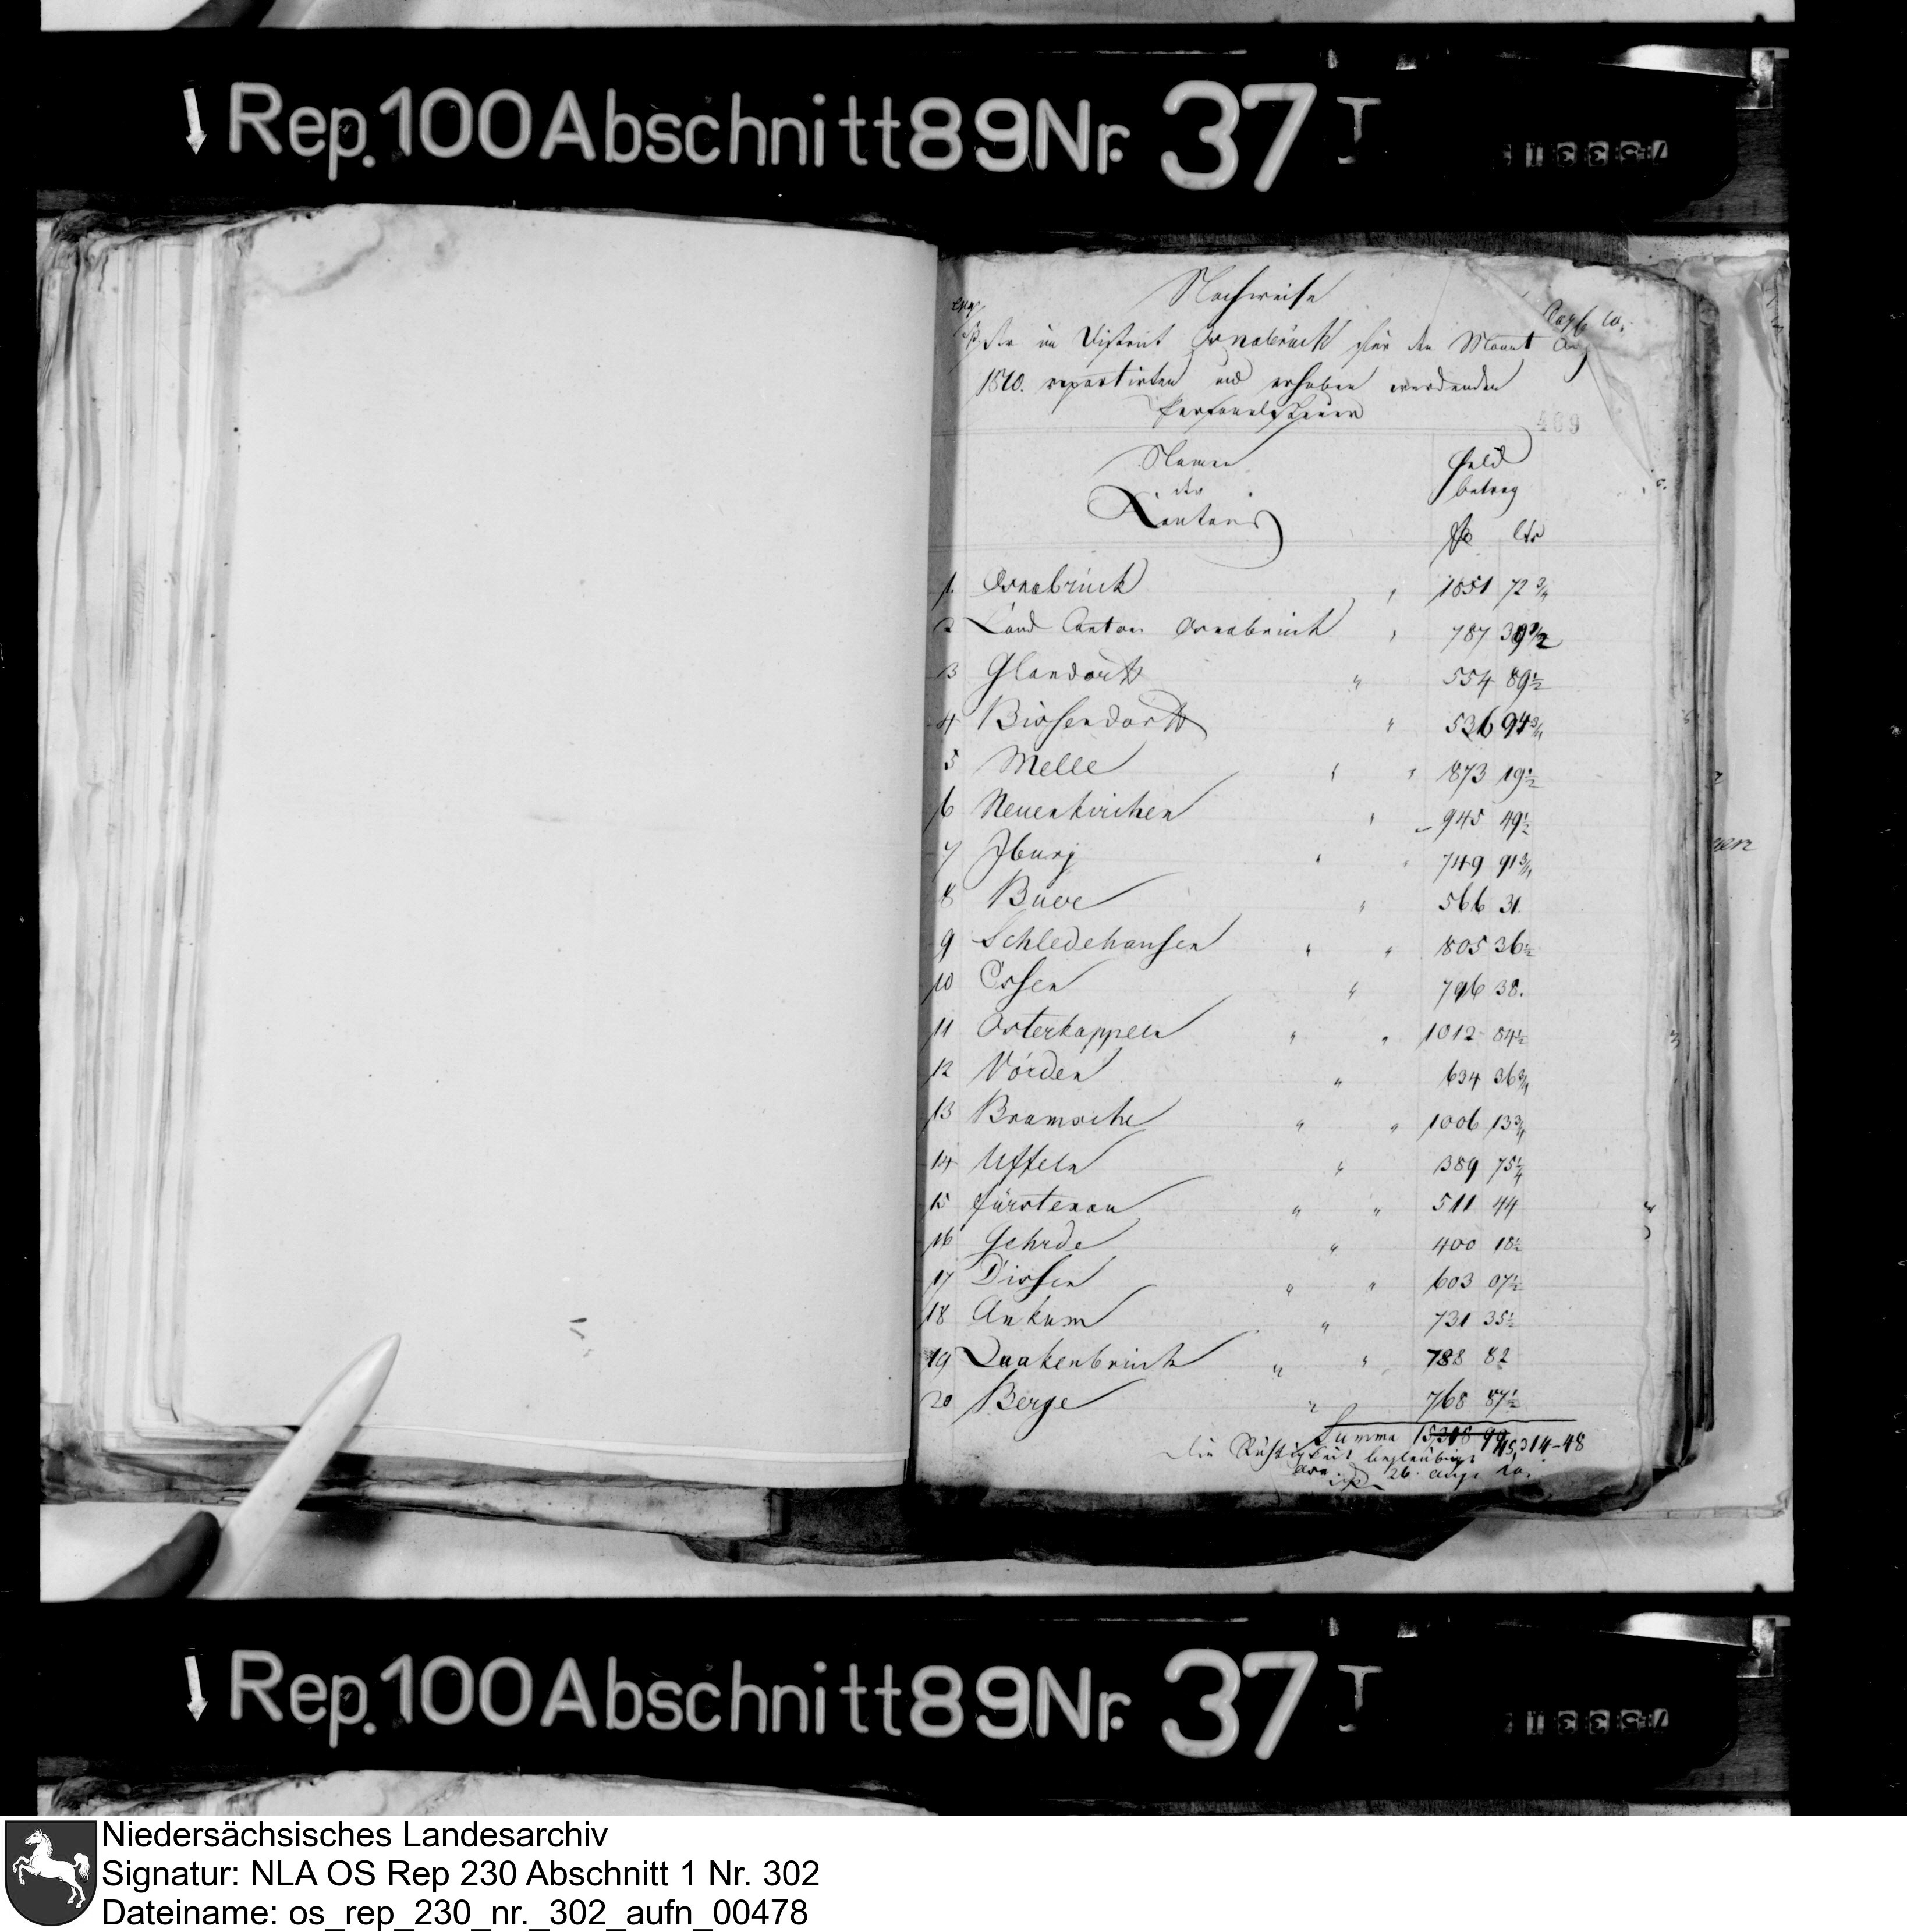 Rep. 100 Abschnitt 89 Nr. 37 I
Nachweise
der im District Osnabrück für den Monat Aug
1810. repartirten und erhoben werdenden
Personalsteuer
409
Namen
des
Cantons
Geld
betrag
fr. Cts
1. Osnabrück " 1851 72 3/4
2 Land Canton Osnabrück " 787 39 1/2
3 Glandorff " 554 89 1/2
4 Bissendorff " 536 94 3/4
5 Melle " " 873 19 1/2
6 Neuenkirchen " 945 49 1/2
7 Iburg " " 749 91 3/4
8 Buer " 566 31.
9 Schledehausen " " 805 36 1/2
10 Essen " 796 38.
11 Osterkappeln " " 1012 84 1/2
12 Vörden " 634 36 3/4
13 Bramsche " " 1006 13 3/4
14 Uffeln " 389 75 1/4
15 Fürstenau " " 511 44
16 Gehrde " 400 18 1/2
17 Dissen " " 603 07 1/2
18 Ankum " 731 35 1/2
19 Quakenbrück " " 788 82
20 Berge " 768 87 1/2
Summa 15,314-48
Die Richtigkeit beglaubigt
26. Aug. 10.
Rep. 100 Abschnitt 89 Nr. 37 I
Niedersächsisches Landesarchiv
Signatur: NLA OS Rep 230 Abschnitt 1 Nr. 302
Dateiname: os_rep_230_nr._302_aufn_00478